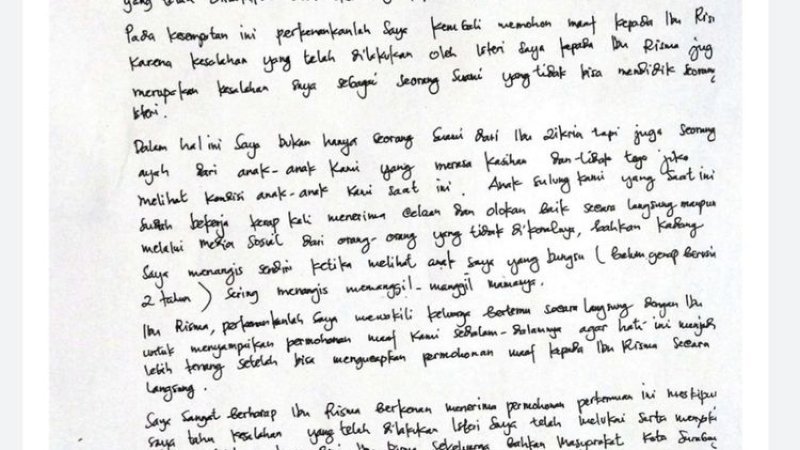 yang telah
Pada kesempatan ini perkenankanlah Saya kembali memohon maaf kepada Ibu Ris
karena kesalahan yang telah dilakukan oleh Isteri Saya kepada Ibu Risma jug
merupakan kesalahan saya sebagai seorang Suami yang tidak bisa mendidik seorang
Isteri.
Dalam hal ini Saya bukan hanya seorang Suami dari Ibu Zikria tapi juga seorang
ayah dari anak-anak kami yang merasa kasihan dan tidak tega jika
melihat kondisi anak-anak kami saat ini. Anak sulung kami yang saat ini
sudah bekerja kerap kali menerima celaan dan olokan baik secara langsung maupun
melalui media Sosial dari orang-orang yang tidak dikenalnya, bahkan kadang
Saya menangis sendiri ketika melihat anak saya yang bungsu (belum genap berusia
2 tahun) sering menangis memanggil-manggil mamanya.
Ibu Risma, perkenankanlah Saya mewakili keluarga bertemu secara langsung dengan Ibu
untuk menyampaikan permohonan maaf kami sedalam-dalamnya agar hati ini menjadi
lebih tenang setelah bisa mengucapkan permohonan maaf kepada Ibu Risma secara
langsung.
Saya sangat berharap Ibu Risma berkenan menerima permohonan pertemuan ini meskipu
saya tahu kesalahan yang telah dilakukan Isteri Saya telah melukai serta menyaki
Ibu Risma sekeluarga bahkan Masyarakat Kota Surabay